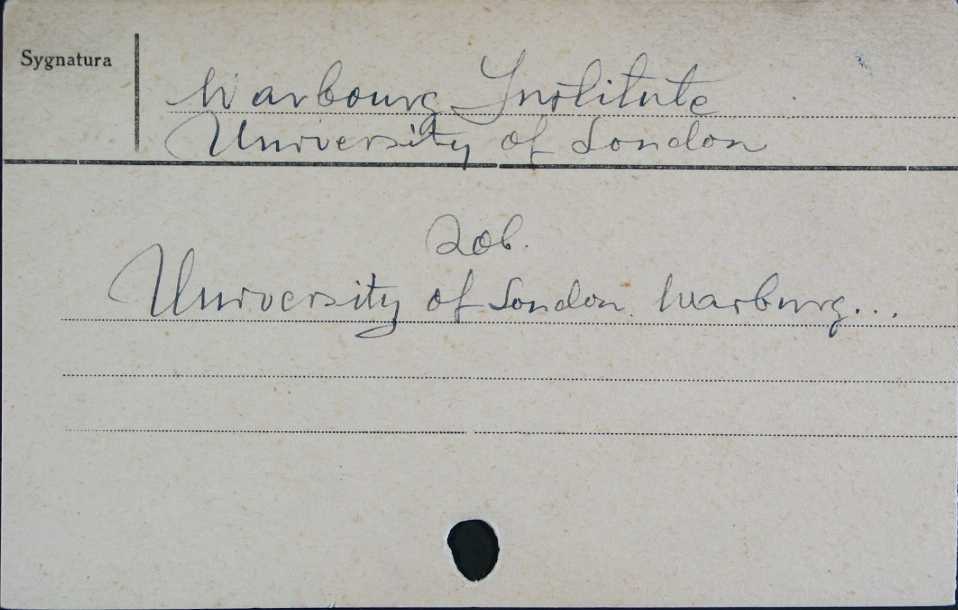 Sygnatura
Warbourg Institute
University of London
Zob.
University of London. Warburg...